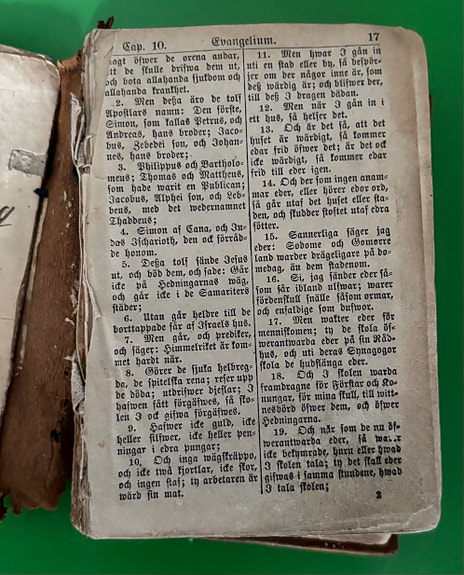 Cap. 10. Evangelium. 17
magt öfwer de orena andar,
att de skulle drifwa dem ut,
och bota allahanda sjukdom och
allahanda krankhet.
2. Men deßa äro de tolf
Apostlars namn: Den förste,
Simon, som kallas Petrus, och
Andreas, hans broder; Jaco-
bus, Zebedei son, och Johan-
nes, hans broder;
3. Philippus och Bartholo-
meus; Thomas och Mattheus,
som hade warit en Publican;
Jacobus, Alphei son, och Leb-
beus, med det wedernamnet
Thaddeus;
4. Simon af Cana, och Ju-
das Ischarioth, den ock förråd-
de honom.
5. Deßa tolf sände Jesus
ut, och böd dem, och sade: Går
icke på Hedningarnas wäg,
och går icke i de Samariters
städer;
6. Utan går heldre till de
borttappade får af Israels hus.
7. Men går, och prediker,
och säger: Himmelriket är kom-
met hardt när.
8. Görer de sjuka helbreg-
da, de spitelska rena; reser upp
de döda; utdrifwer djeflar; I
hafwen fått förgäfwes, så sko-
len I ock gifwa förgäfwes.
9. Hafwer icke guld, icke
heller silfwer, icke heller pen-
ningar i edra pungar;
10. Och inga wägskräppo,
och icke twå kjortlar, icke skor,
och ingen staf; ty arbetaren är
wärd sin mat.
11. Men hwar I gån in
uti en stad eller by, så bespör-
jer om der någor inne är, som
deß wärdig är; och blifwer der,
till deß I dragen dädan.
12. Men när I gån in i
ett hus, så helser det.
13. Och är det så, att det
huset är wärdigt, så kommer
edar frid öfwer det; är det ock
icke wärdigt, så kommer edar
frid till eder igen.
14. Och der som ingen anam-
mar eder, eller hörer edor ord,
så går utaf det huset eller sta-
den, och skudder stoftet utaf edra
fötter.
15. Sannerliga säger jag
eder: Sodome och Gomorre
land warder drägeligare på do-
medag, än dem stadenom.
16. Si, jag sänder eder så-
som får ibland ulfwar; warer
fördenskull snälle såsom ormar,
och enfaldige som dufwor.
17. Men wakter eder för
menniskonen; ty de skola öf-
werantwarda eder på sin Råd-
hus, och uti deras Synagogor
skola de hudflänga eder.
18. Och I skolen warda
framdragne för Förstar och Ko-
nungar, för mina skull, till witt-
nesbörd öfwer dem, och öfwer
Hedningarna.
19. Och när som de nu öf-
werantwarda eder, så warer
icke bekymrade, huru eller hwad
I skolen tala; ty det skall eder
gifwas i samma stundene, hwad
I tala skolen;
2